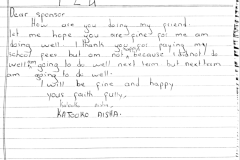 Dear sponsor
How are you doing my friend.
let me hope you are fine for me am
doing well I thank you for paying my
school fees but am not happy because I didn't do
well am going to do well next term but next term
am going to do well.
I will be fine and happy
yours faith fully.
KATOOKO AISHA.